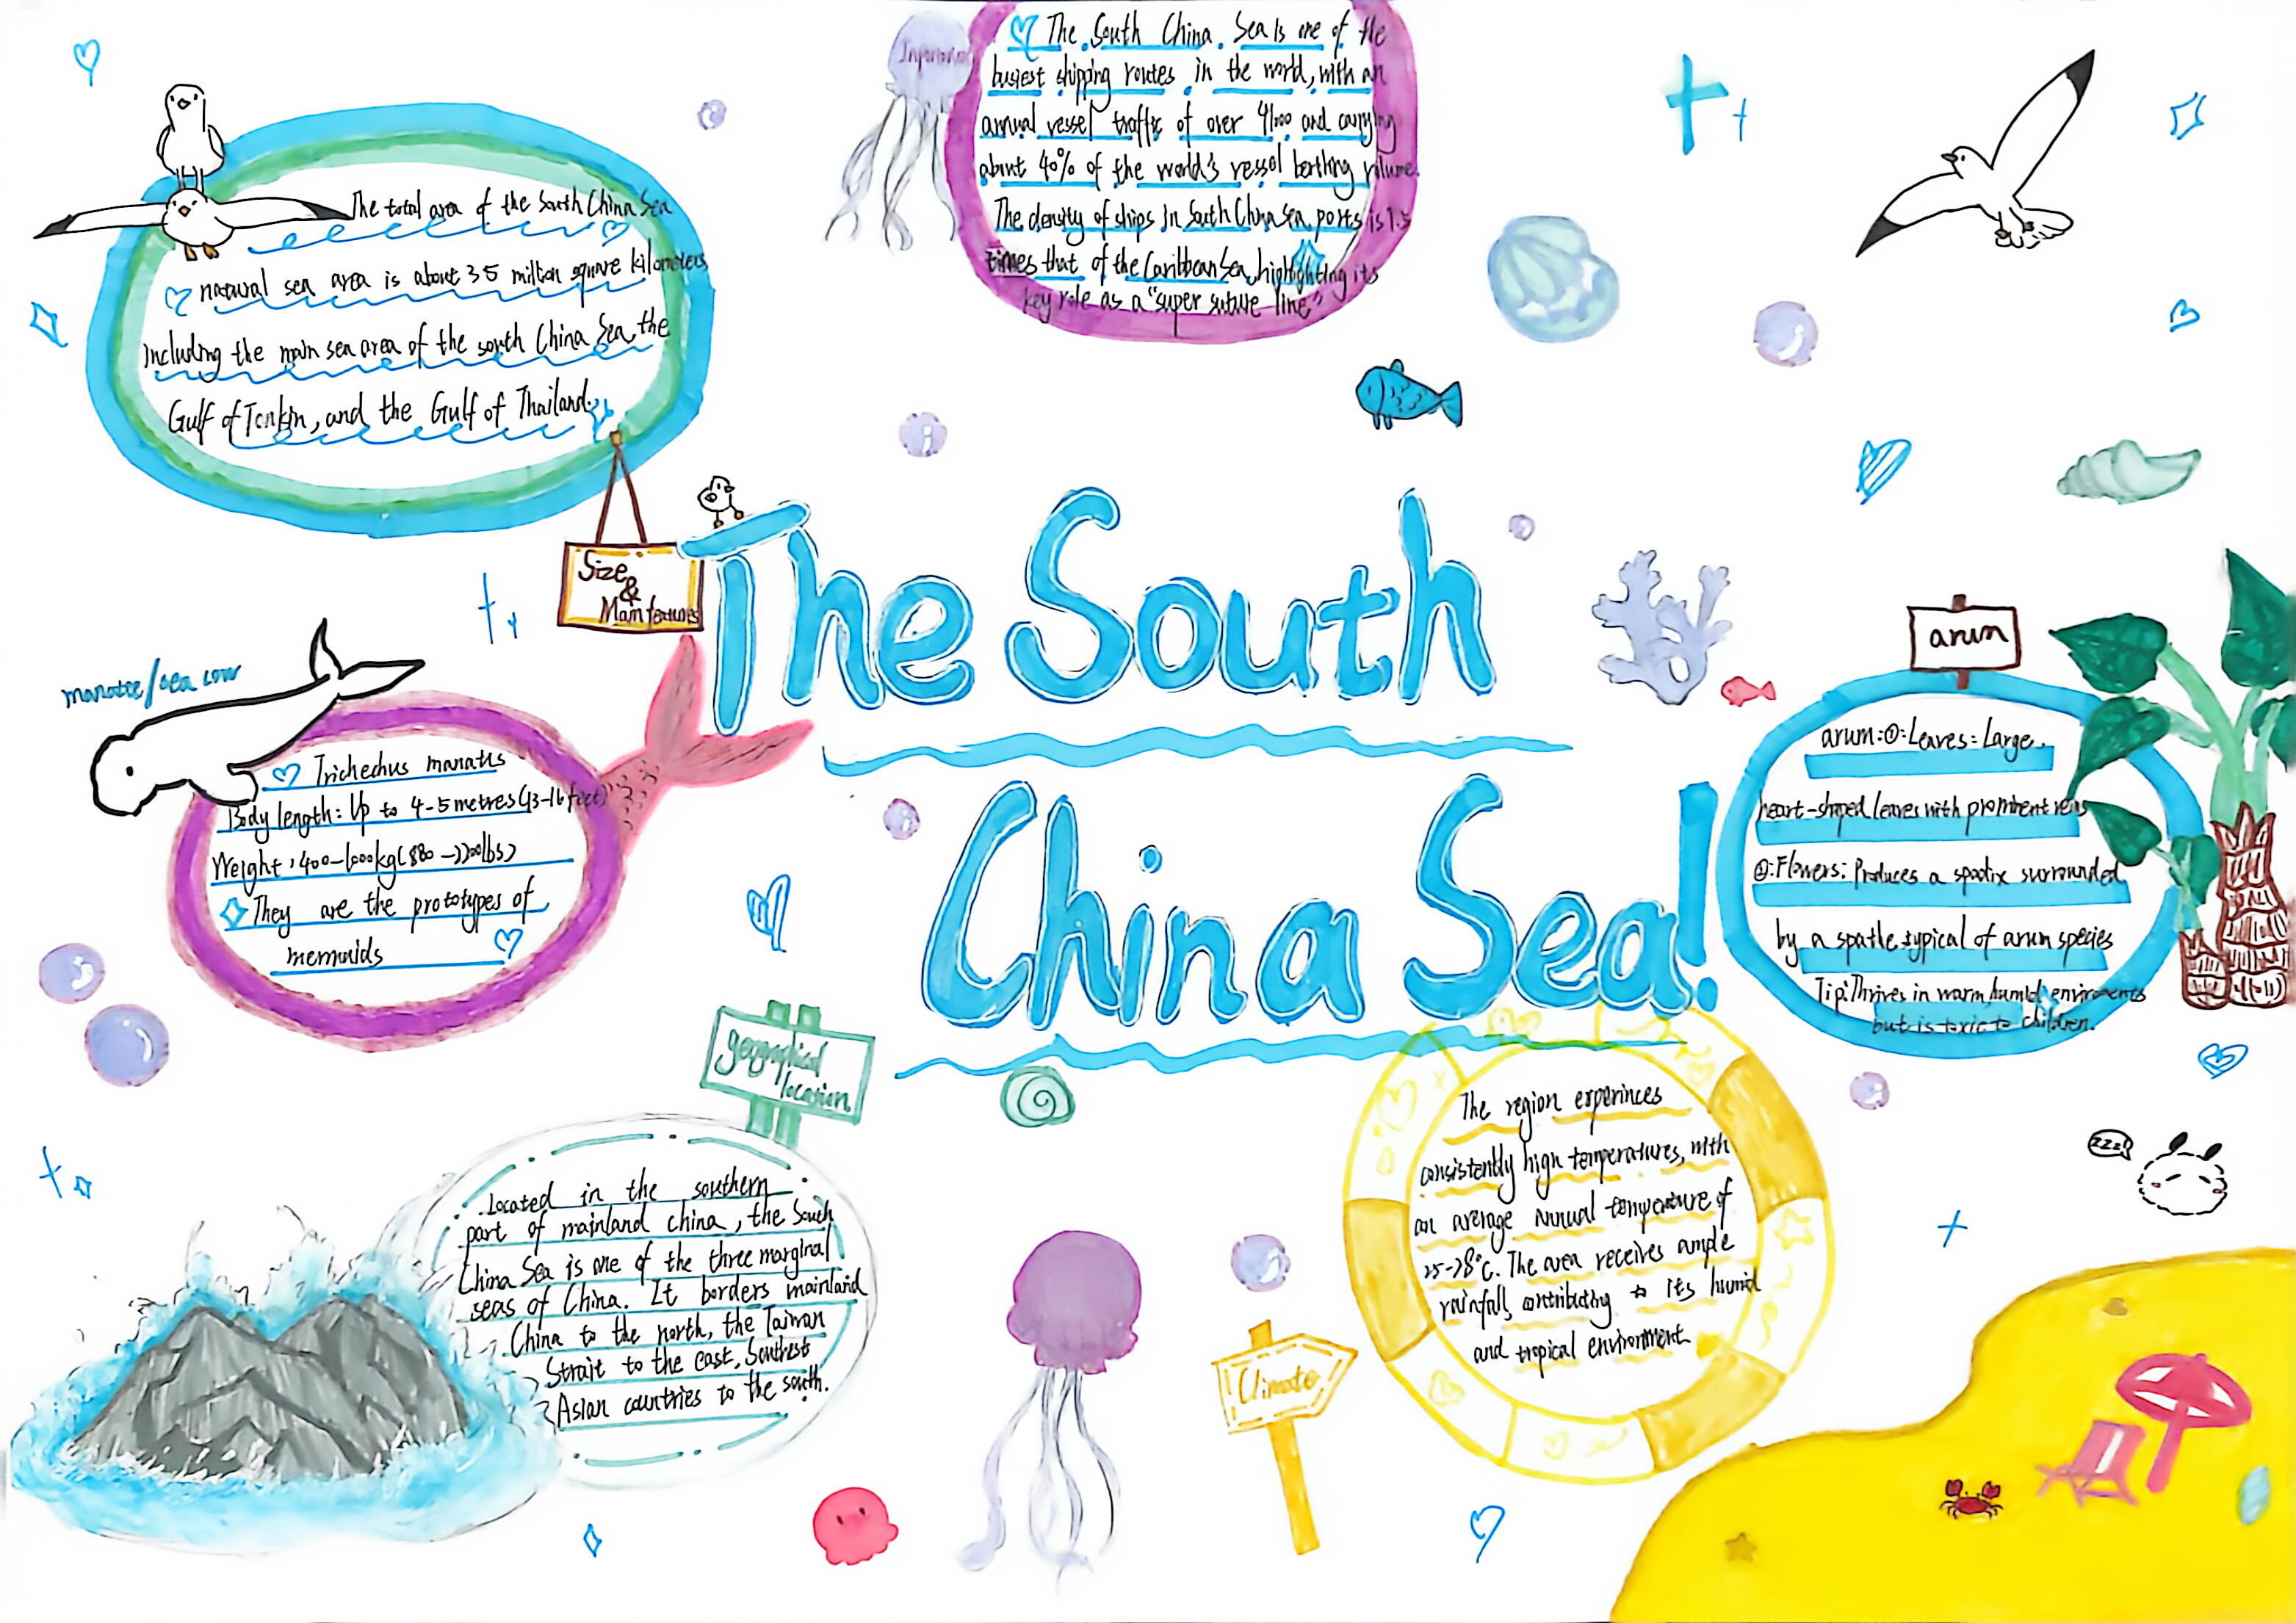 Information
The South China Sea is one of the
busiest shipping routes in the world, with an
annual vessel traffic of over 41000 and carrying
about 40% of the world's vessel berthing volume.
The density of ships in South China Sea ports is 1.5
times that of the Caribbean Sea, highlighting its
key role as a "super suture line"
The total area of the South China Sea
natural sea area is about 3.5 million square kilometers,
including the main sea area of the south China Sea, the
Gulf of Tonkin, and the Gulf of Thailand.
Size
&
Main features
The South
China Sea!
manatee/sea cow
Trichechus manatus
Body length: Up to 4-5 metres (13-16 feet)
Weight: 400-1000kg (880-2200lbs)
They are the prototypes of
mermaids
arum
arum: ①: Leaves: Large.
heart-shaped leaves with prominent veins
②: Flowers: Produces a spadix surrounded
by a spathe, typical of arum species
Tip: Thrives in warm, humid enviroments
but is toxic to children.
geographical
location
Located in the southern
part of mainland china, the South
China Sea is one of the three marginal
seas of China. It borders mainland
China to the north, the Taiwan
Strait to the east,
Asian countries to the south.
Climate
The region experinces
consistently high temperatures, with
an average annual temperature of
25-28°C. The area receives ample
rainfall, contributing to its humid
and tropical environment
zzz!